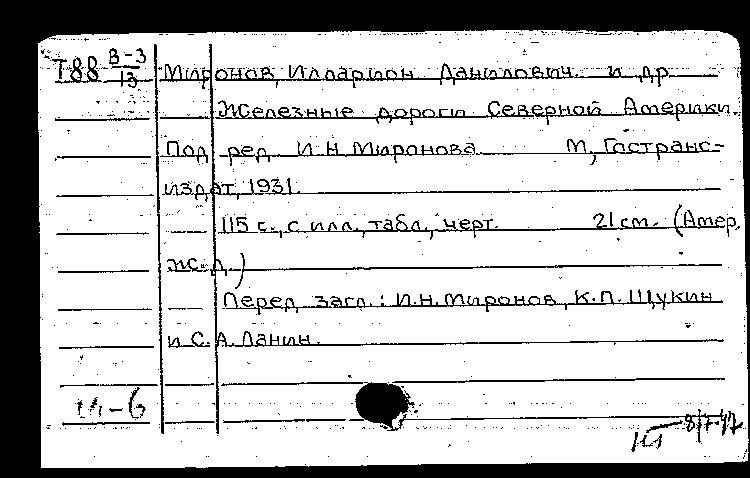 Т88 В-3/13 Миронов, Илларион Данилович и др
Железные дороги Северной Америки.
Под ред И.Н.Миронова М, Гострансиздат, 1931.
115 с., с илл., табл., черт. 21 см. (Амер.
ж.-д.)
Перед загл.: И.Н.Миронов, К.П.Щукин
и С.А.Ланин.